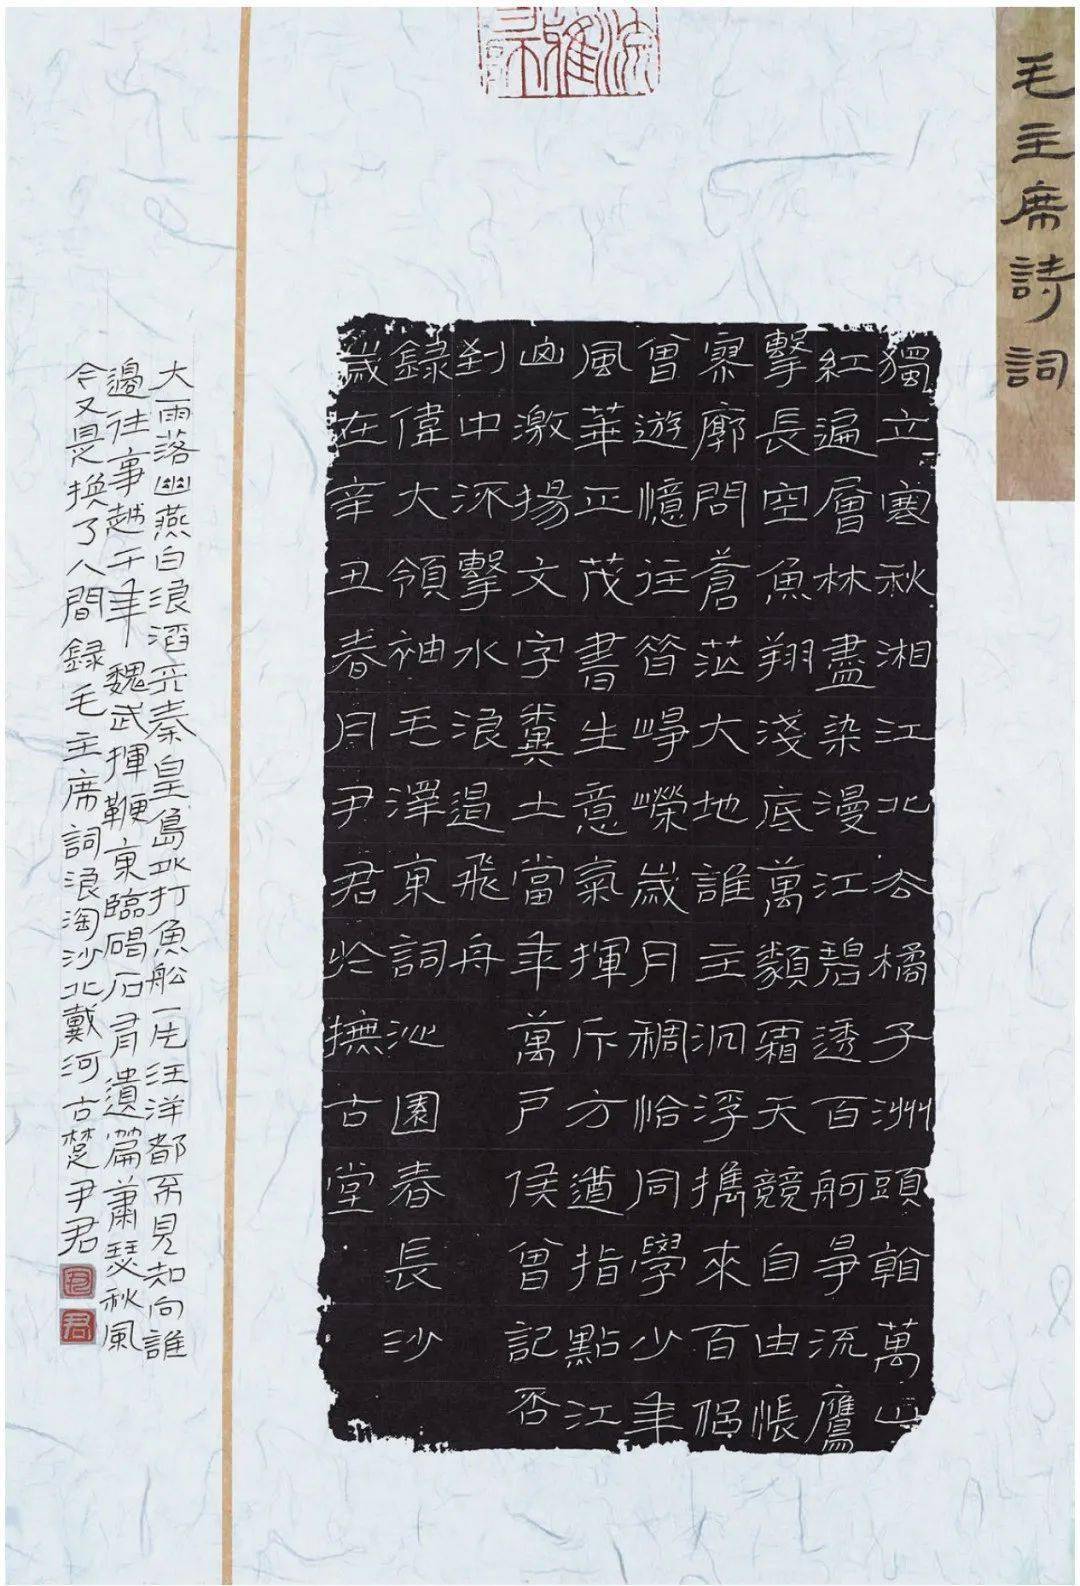 毛主席詩詞
獨立寒秋湘江北去橘子洲頭看萬山
紅遍層林盡染漫江碧透百舸爭流鷹
擊長空魚翔淺底萬類霜天競自由悵
寥廓問蒼茫大地誰主沉浮攜來百侶
曾遊憶往昔崢嶸歲月稠恰同學少年
風華正茂書生意氣揮斥方遒指點江
山激揚文字糞土當年萬戶侯曾記否
到中流擊水浪遏飛舟
錄偉大領袖毛澤東詞沁園春長沙
歲在辛丑春月尹君於撫古堂
大雨落幽燕白浪滔天秦皇島外打魚船一片汪洋都不見知向誰
邊往事越千年魏武揮鞭東臨碣石有遺篇蕭瑟秋風
今又是換了人間錄毛主席詞浪淘沙北戴河古楚尹君